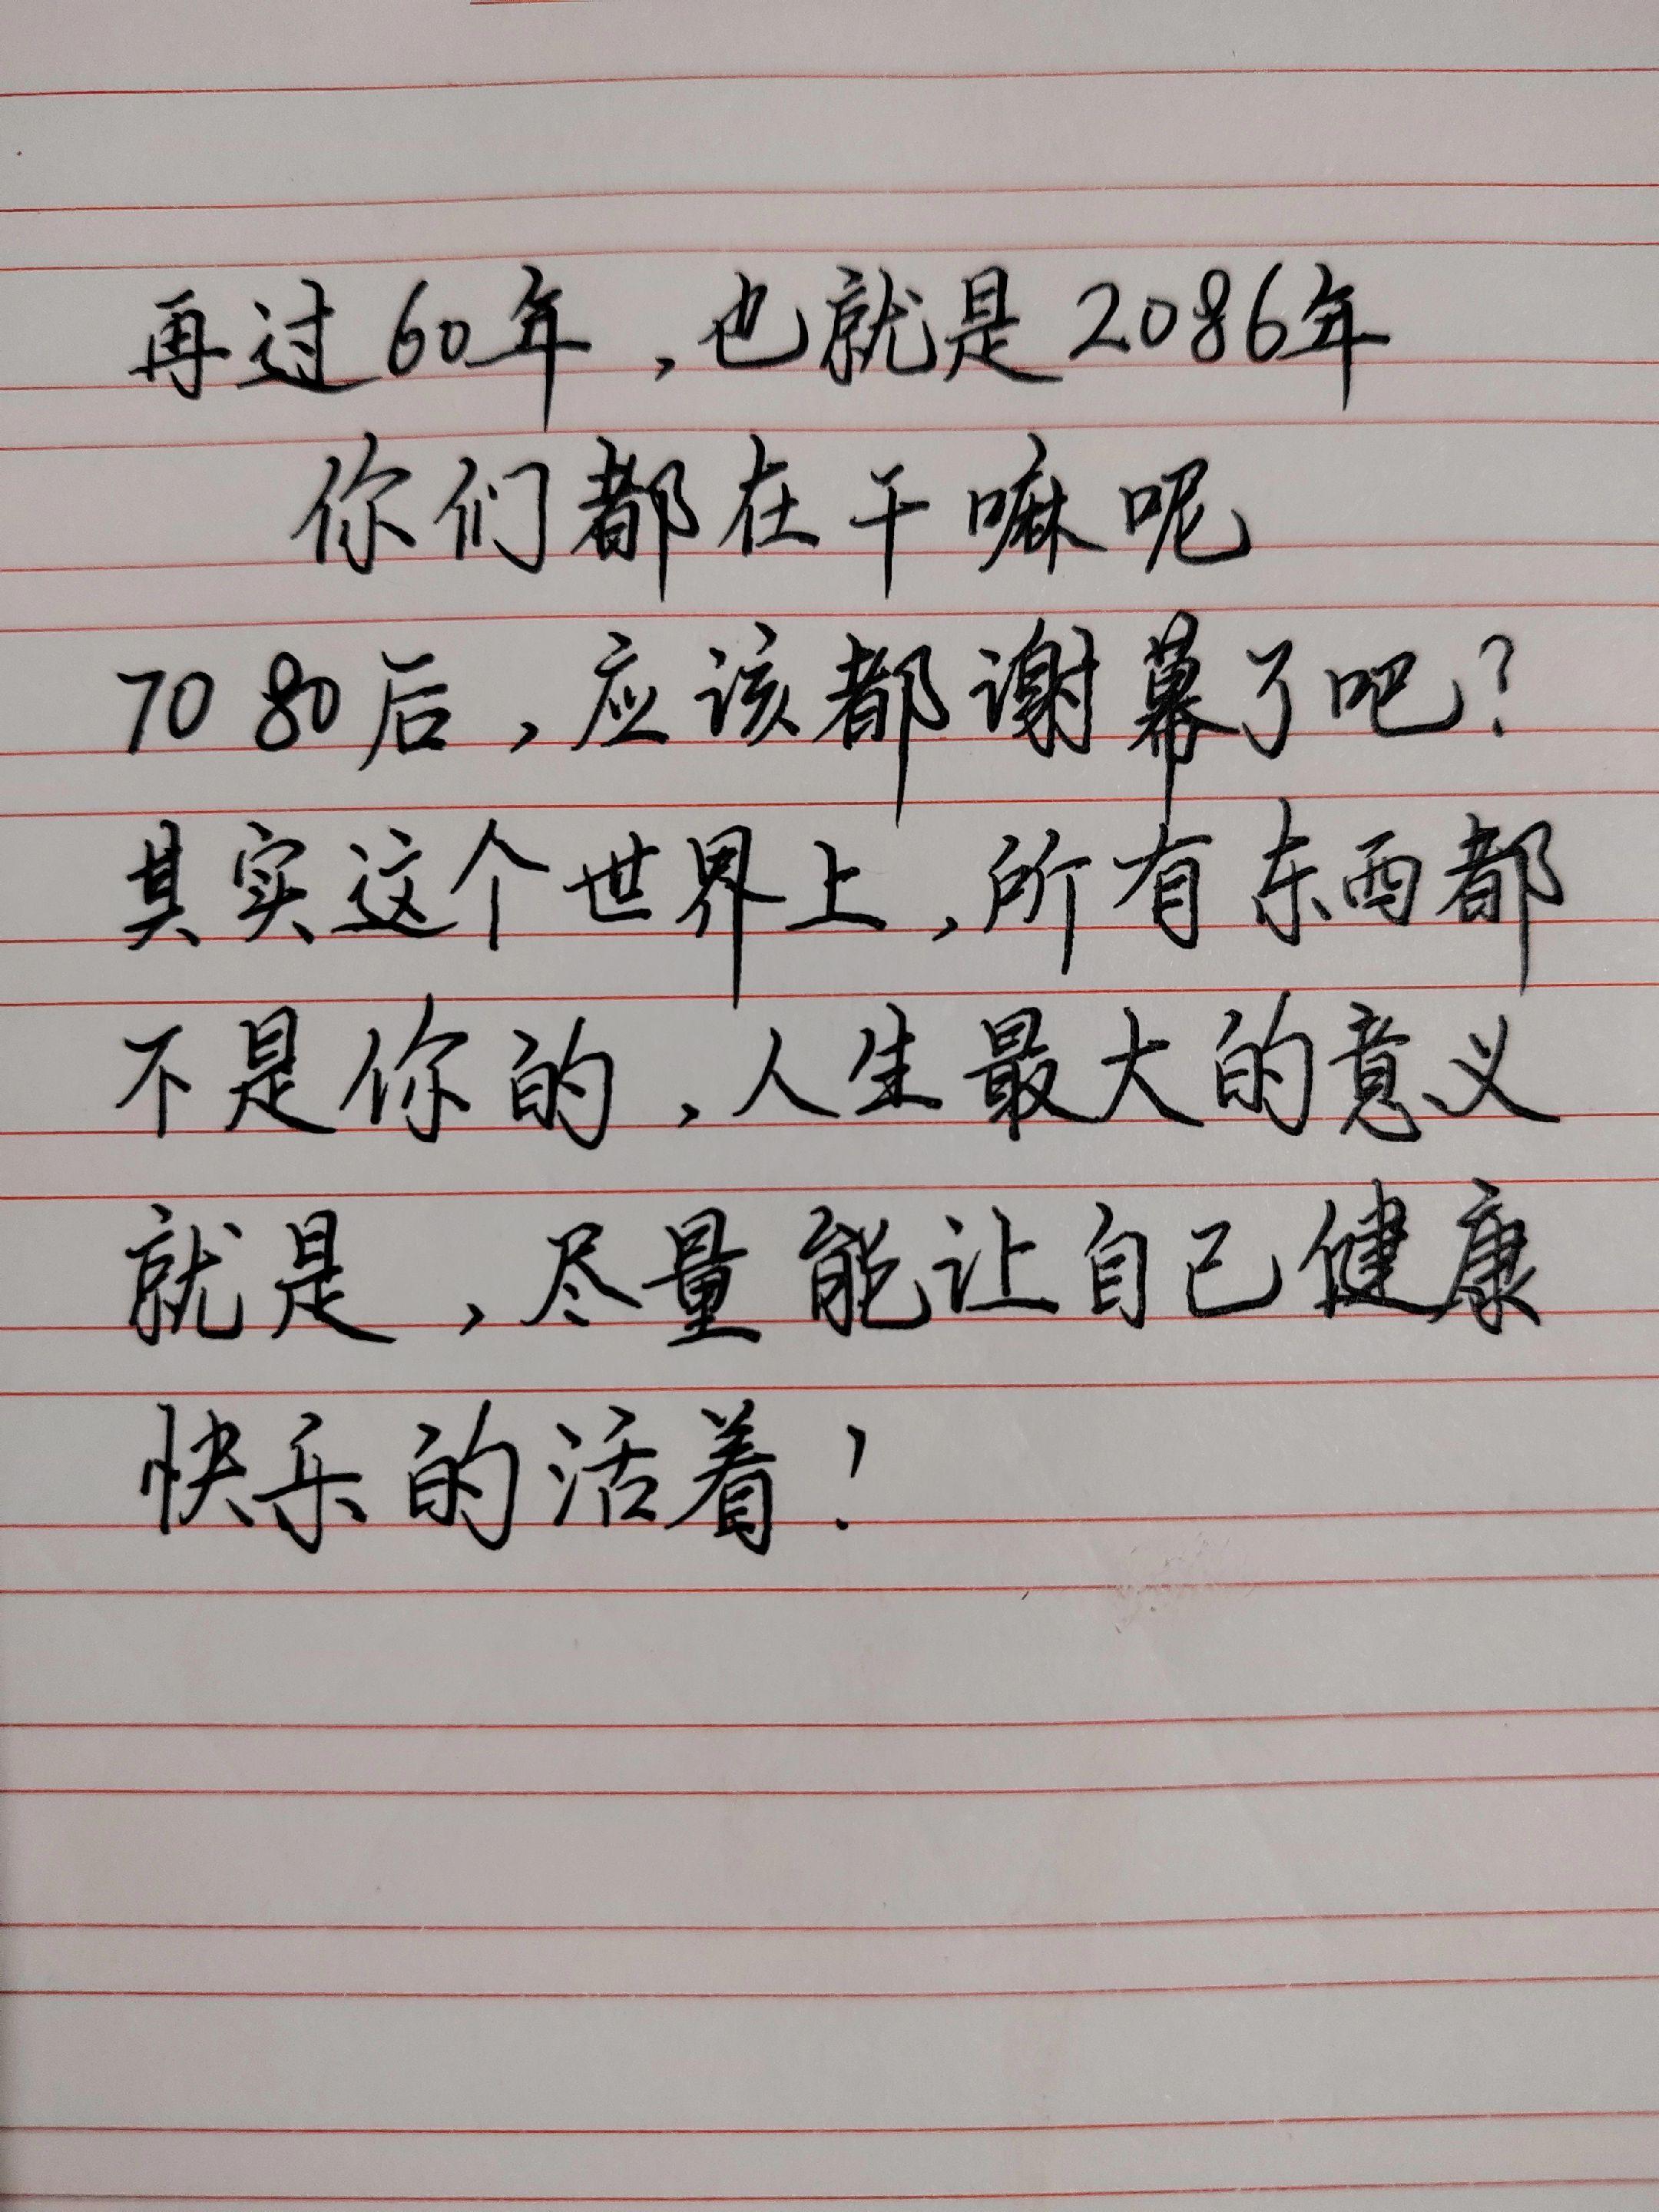 再过60年,也就是2086年
你们都在干嘛呢
70 80后,应该都谢幕了吧?
其实这个世界上,所有东西都
不是你的,人生最大的意义
就是,尽量能让自己健康
快乐的活着!